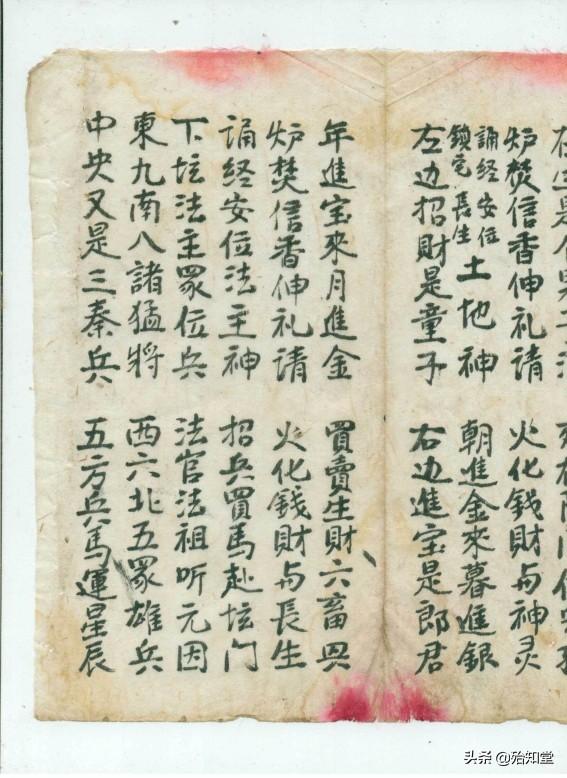 炉焚信香伸礼请 火化錢財与神灵
誦経安位
鎖宅長生
土地神 朝進金來暮進銀
左边招財是童子 右边進宝是郎君
年進宝來月進金 買賣生財六畜兴
炉焚信香伸礼請 火化錢財与長生
誦経安位法主神 招兵買馬赴坛门
下坛法主眾位兵 法官法祖听元因
東九南八諸猛将 西六北五眾雄兵
中央又是三秦兵 五方兵馬運星辰
头条 @殆知堂